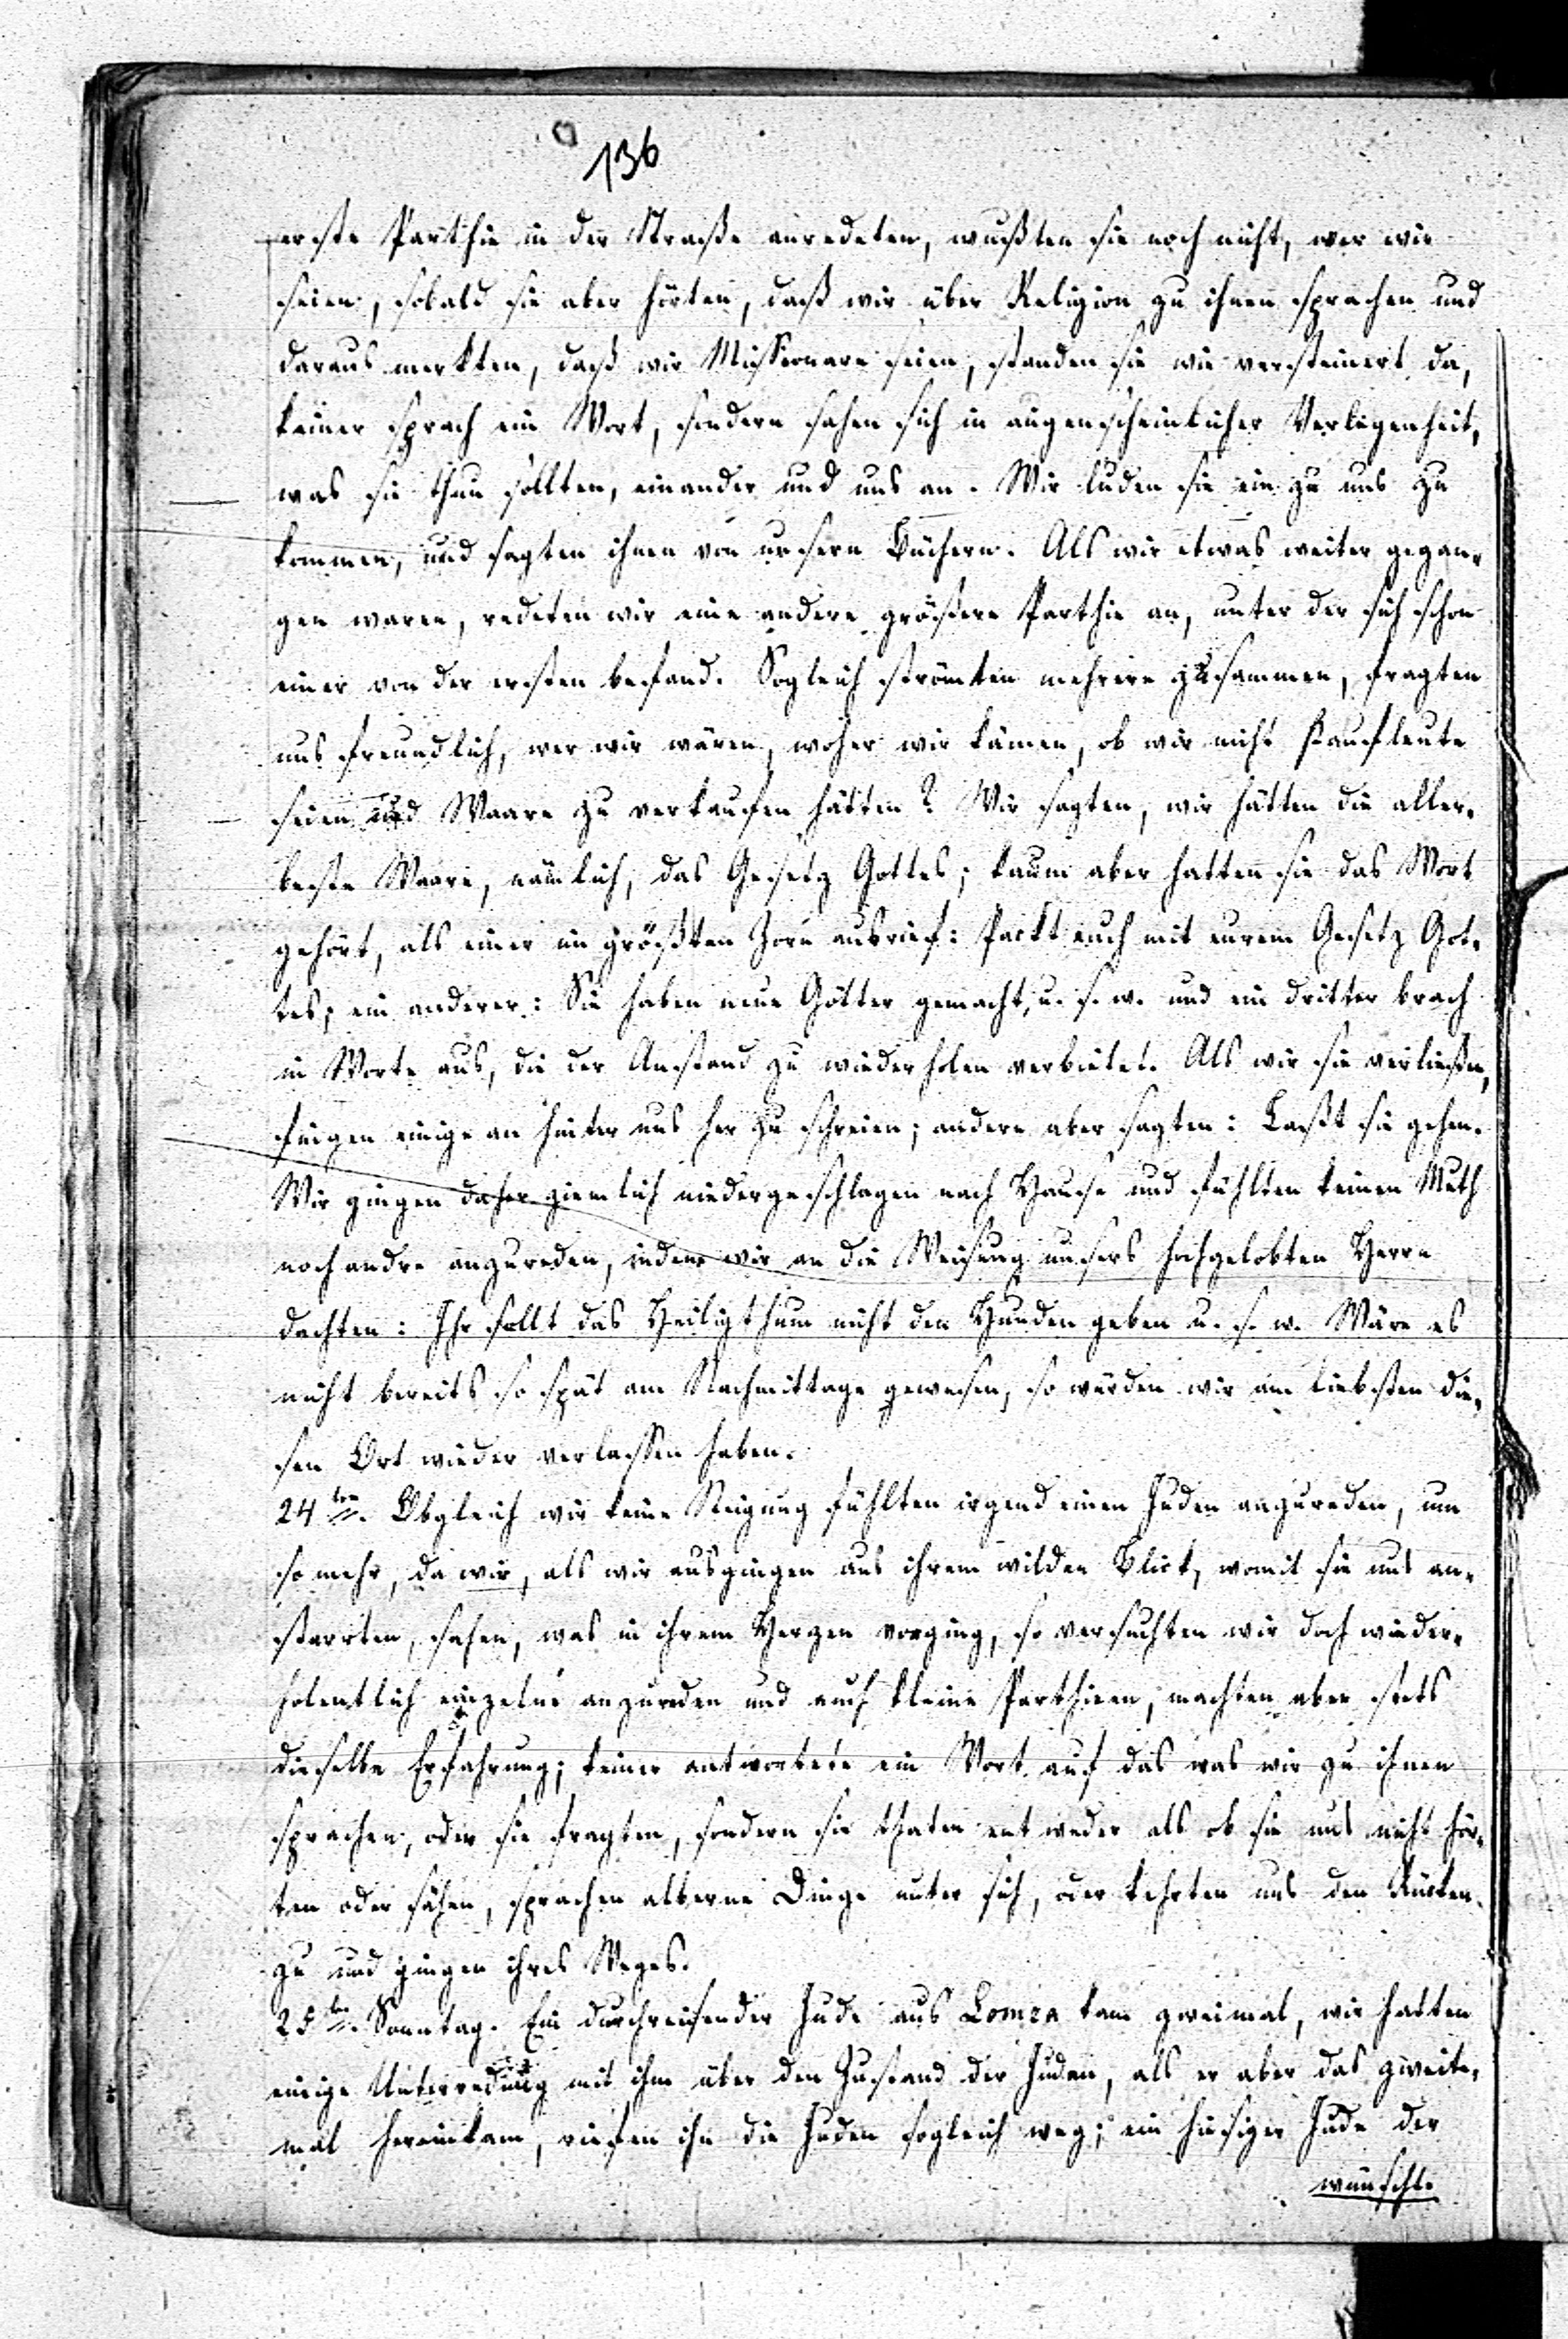 136
erste Parthie in der Straße anredeten, wußten sie noch nicht, wer wir
seien, sobald sie aber hörten, daß wir über Religion zu ihnen sprachen und
daraus merkten, daß wir Missionare seien, standen sie wie versteinert da,
keiner sprach ein Wort, sondern sahen sich in augenscheinlicher Verlegenheit,
was sie thun sollten, einander und uns an. Wir luden sie ein zu uns zu
kommen, und sagten ihnen von unsern Büchern. Als wir etwas weiter gegan-
gen waren, redeten wir eine andere größere Parthie an, unter der sich schon
einer von der ersten befand. Sogleich strömten mehrere zusammen, fragten
uns freundlich, wer wir wären, woher wir kämen, ob wir nicht Kaufleute
seien und Waare zu verkaufen hätten? Wir sagten, wir hätten die aller-
beste Waare, nämlich, das Gesetz Gottes; kaum aber hatten sie das Wort
gehört, als einer im größten Zorn ausrief: Packt euch mit eurem Gesetz Got-
tes; ein anderer: Sie haben neue Götter gemacht, u. s. w. und ein dritter brach
in Worte aus, die der Anstand zu wiederholen verbietet. Als wir sie verließen,
fingen einige an hinter uns her zu schreien; andere aber sagten: Laßt sie gehen.
Wir gingen daher ziemlich niedergeschlagen nach Hause und fühlten keinen Muth
noch andre anzureden, indem wir an die Weisung unsers hochgelobten Herrn
dachten: Ihr sollt das Heiligthum nicht den Hunden geben u. s. w. Wäre es
nicht bereits so spät am Nachmittage gewesen, so würden wir am liebsten die-
sen Ort wieder verlassen haben.
24ten. Obgleich wir keine Neigung fühlten irgend einen Juden anzureden, um
so mehr, da wir, als wir ausgingen aus ihrem wilden Blick, womit sie uns an-
starrten, sahen, was in ihrem Herzen vorging, so versuchten wir doch wieder-
holentlich einzelne anzureden und auch kleine Parthieen, machten aber stets
dieselbe Erfahrung; keiner antwortete ein Wort auf das was wir zu ihnen
sprachen, oder sie fragten, sondern sie thaten entweder als ob sie uns nicht hör-
ten oder sähen, sprachen alberne Dinge unter sich, oder kehrten uns den Rücken
zu und gingen ihres Weges.
25ten. Sonntag. Ein durchreisender Jude aus Lomza kam zweimal, wir hatten
einige Unterredung mit ihm über den Zustand der Juden, als er aber das zweite-
mal hereinkam, riefen ihn die Juden sogleich weg; ein hiesiger Jude der
wünscht.